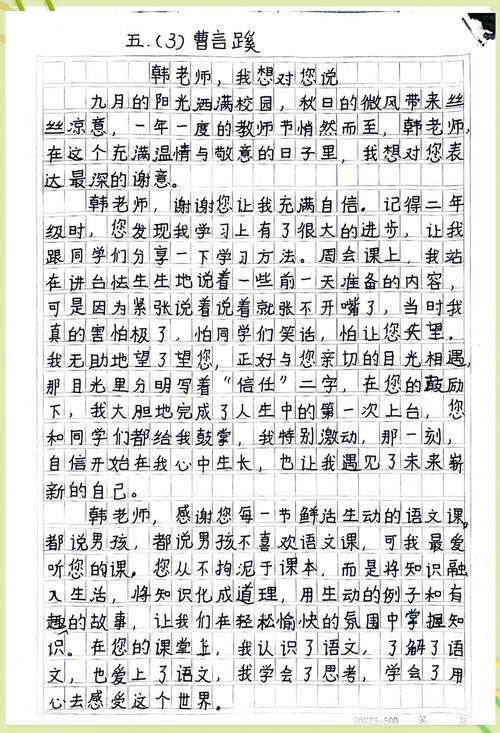 五.(3)曹言蹊
韩老师，我想对您说
九月的阳光洒满校园，秋日的微风带来丝
丝凉意，一年一度的教师节悄然而至，韩老师，
在这个充满温情与敬意的日子里，我想对您表
达最深的谢意。
韩老师，谢谢您让我充满自信。记得二年
级时，您发现我学习上有了很大的进步，让我
跟同学们分享一下学习方法。周会课上，我站
在讲台怯生生地说着一些前一天准备的内容，
可是因为紧张说着说着就张不开嘴了，当时我
真的害怕极了，怕同学们笑话，怕让您失望。
我无助地望了望您，正好与您亲切的目光相遇，
那目光里分明写着“信任”二字，在您的鼓励
下，我大胆地完成了人生中的第一次上台，您
和同学们都给我鼓掌，我特别激动，那一刻，
自信开始在我心中生长，也让我遇见了未来崭
新的自己。
韩老师，感谢您每一节鲜活生动的语文课，
都说男孩，都说男孩不喜欢语文课，可我最爱
听您的课。您从不拘泥于课本，而是将知识融
入生活，将知识化成道理，用生动的例子和有
趣的故事，让我们在轻松愉快的氛围中掌握知
识。在您的课堂上，我认识了语文，了解了语
文，也爱上了语文，我学会了思考，学会了用
心去感受这个世界。
20X25=500 第 页